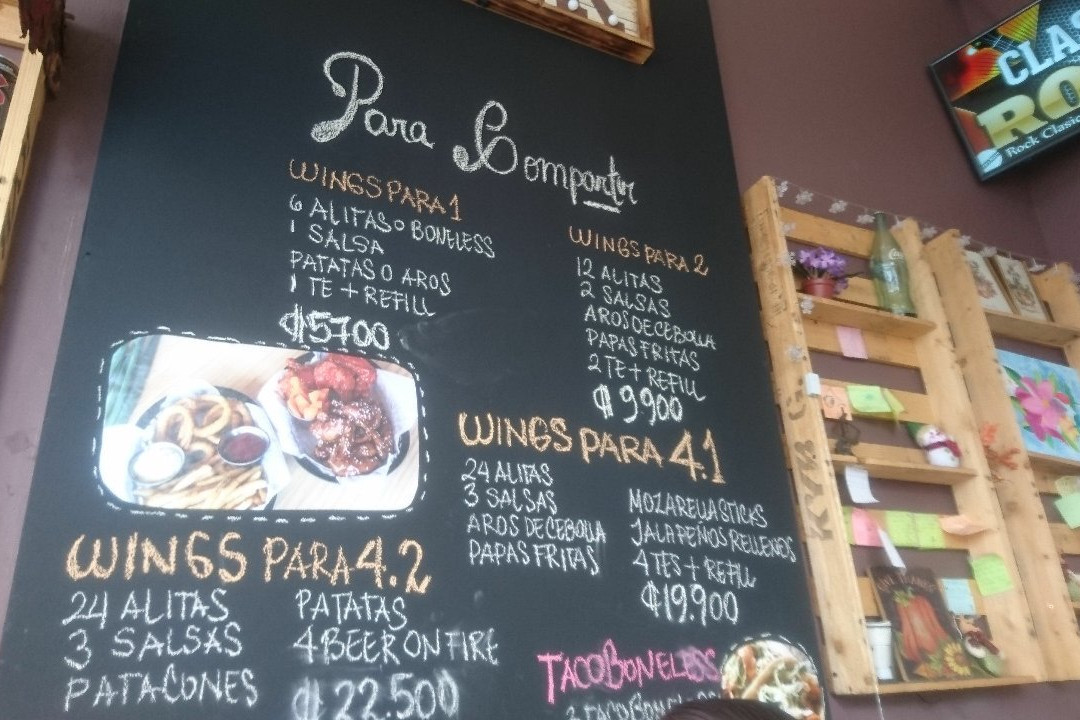 Para Compartir
WINGS PARA 1
6 ALITAS O BONELESS
1 SALSA
PATATAS O AROS
1 TE + REFILL
₡5700
WINGS PARA 2
12 ALITAS
2 SALSAS
AROS DE CEBOLLA
PAPAS FRITAS
2 TE + REFILL
₡9900
WINGS PARA 4.1
24 ALITAS
3 SALSAS
AROS DE CEBOLLA
PAPAS FRITAS
MOZARELLA STICKS
JALAPEÑOS RELLENOS
4 TES + REFILL
₡19.900
WINGS PARA 4.2
24 ALITAS
3 SALSAS
PATACONES
PATATAS
4 BEER ON FIRE
₡22.500
TACO BONELESS
CLAS
RO
Rock Clasic